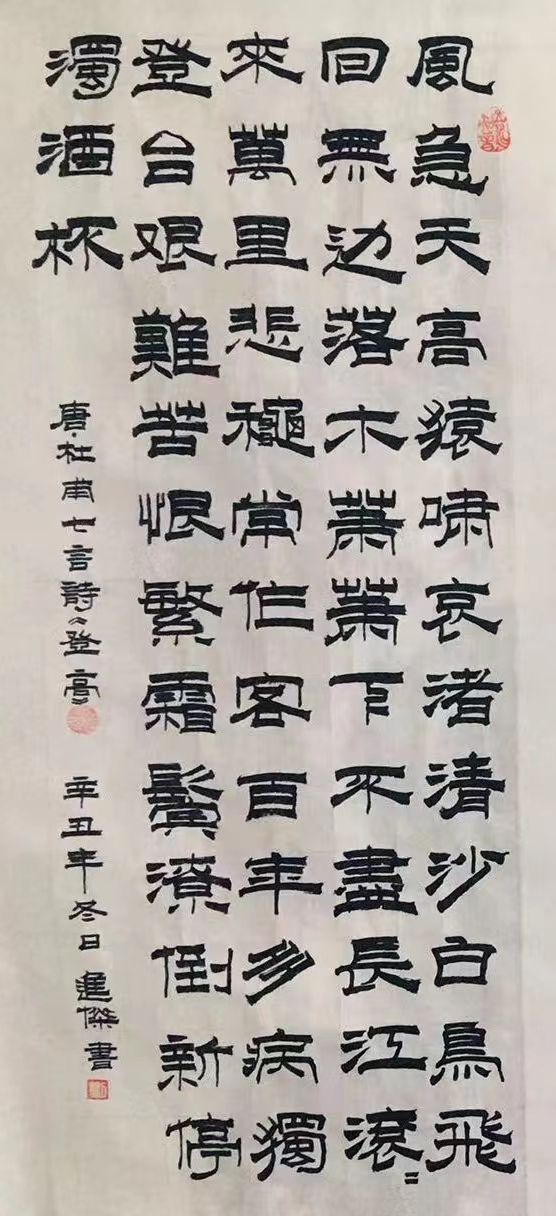 風急天高猿啸哀渚清沙白鳥飛
回無边落木萧萧下不盡長江滾〻
來萬里悲穐常作客百年多病獨
登台艰難苦恨繁霜鬢潦倒新停
濁酒杯
唐·杜甫七言詩《登高》
辛丑年冬日 進傑書